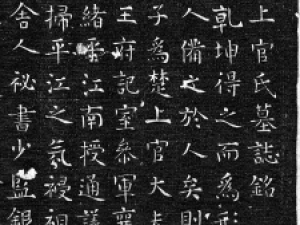 上官氏墓誌銘
乾坤得之而為形
人備之於人矣則
子為楚上官大夫
王府記室參軍襄
緒平江南授通議
掃平江之氛祲祖
舍人祕書少監銀